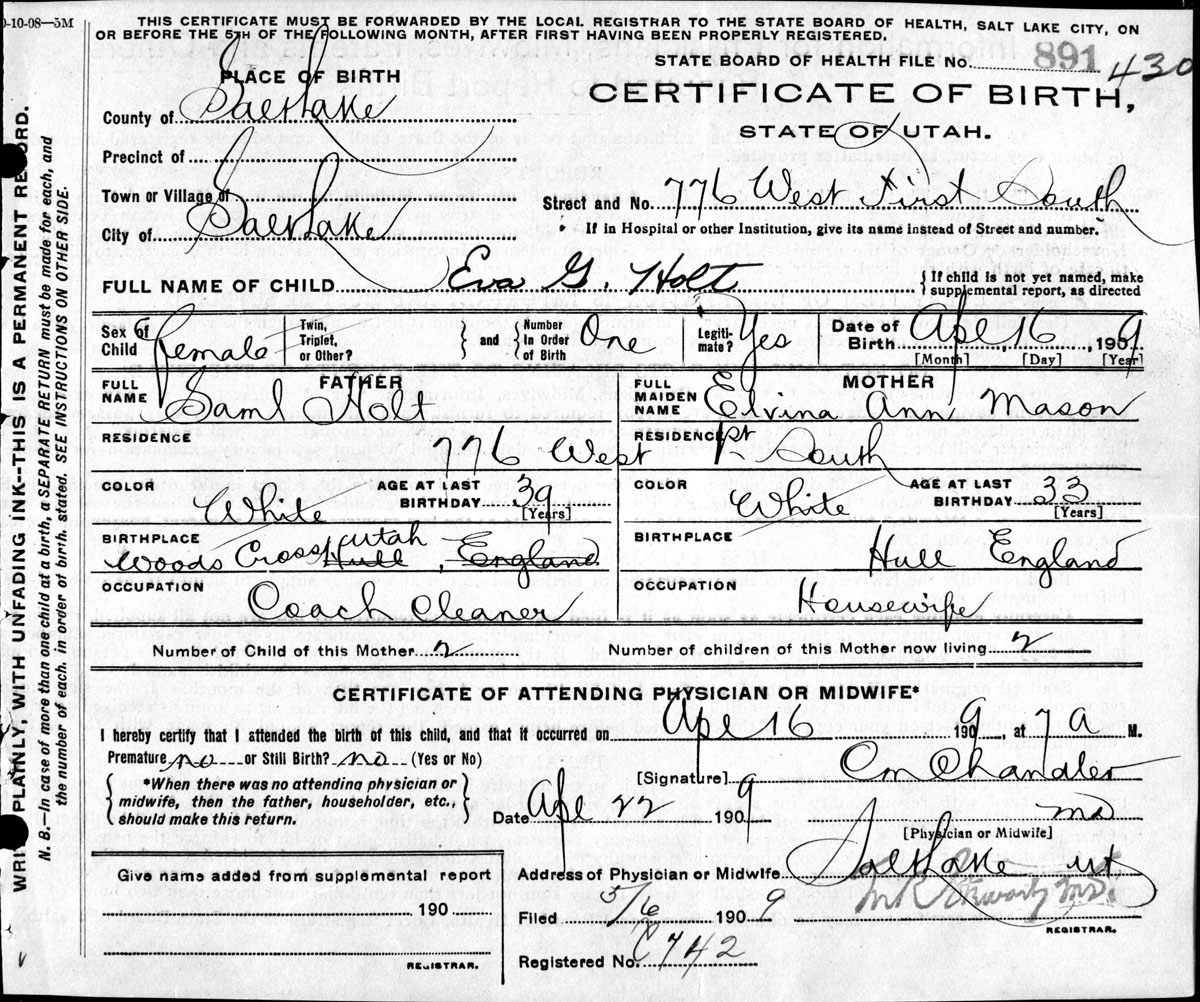 0-10-08—5M
THIS CERTIFICATE MUST BE FORWARDED BY THE LOCAL REGISTRAR TO THE STATE BOARD OF HEALTH, SALT LAKE CITY, ON
OR BEFORE THE 5TH OF THE FOLLOWING MONTH, AFTER FIRST HAVING BEEN PROPERLY REGISTERED.
STATE BOARD OF HEALTH FILE No. 891 430
PLACE OF BIRTH
CERTIFICATE OF BIRTH,
STATE OF UTAH.
County of Salt Lake
Precinct of
Town or Village of
Street and No. 776 West First South
City of Salt Lake
* If in Hospital or other Institution, give its name instead of Street and number.
FULL NAME OF CHILD Eva G. Holt { If child is not yet named, make supplemental report, as directed
Sex of Child Female
Twin, Triplet, or Other? } and { Number In Order of Birth One
Legiti-mate? Yes
Date of Birth Apl 16, 1909
[Month] [Day] [Year]
FULL NAME FATHER Saml Holt
FULL MAIDEN NAME MOTHER Elvina Ann Mason
RESIDENCE 776 West 1st South RESIDENCE
COLOR White AGE AT LAST BIRTHDAY 39 [Years]
COLOR White AGE AT LAST BIRTHDAY 33 [Years]
BIRTHPLACE Woods Cross Utah Hull, England
BIRTHPLACE Hull England
OCCUPATION Coach Cleaner
OCCUPATION Housewife
Number of Child of this Mother 2 Number of children of this Mother now living 2
CERTIFICATE OF ATTENDING PHYSICIAN OR MIDWIFE*
I hereby certify that I attended the birth of this child, and that it occurred on Apl 16 1909, at 7 A M.
Premature no or Still Birth? no (Yes or No)
{ *When there was no attending physician or midwife, then the father, householder, etc., should make this return. }
[Signature] Chandler
Date Apl 22 1909 MD
[Physician or Midwife]
Give name added from supplemental report
190
REGISTRAR.
Address of Physician or Midwife Salt Lake ut
Filed 5/6 1909 M.D.
REGISTRAR.
Registered No. C742
WRITE PLAINLY, WITH UNFADING INK--THIS IS A PERMANENT RECORD.
N. B.—In case of more than one child at a birth, a SEPARATE RETURN must be made for each, and
the number of each. in order of birth. stated. SEE INSTRUCTIONS ON OTHER SIDE.